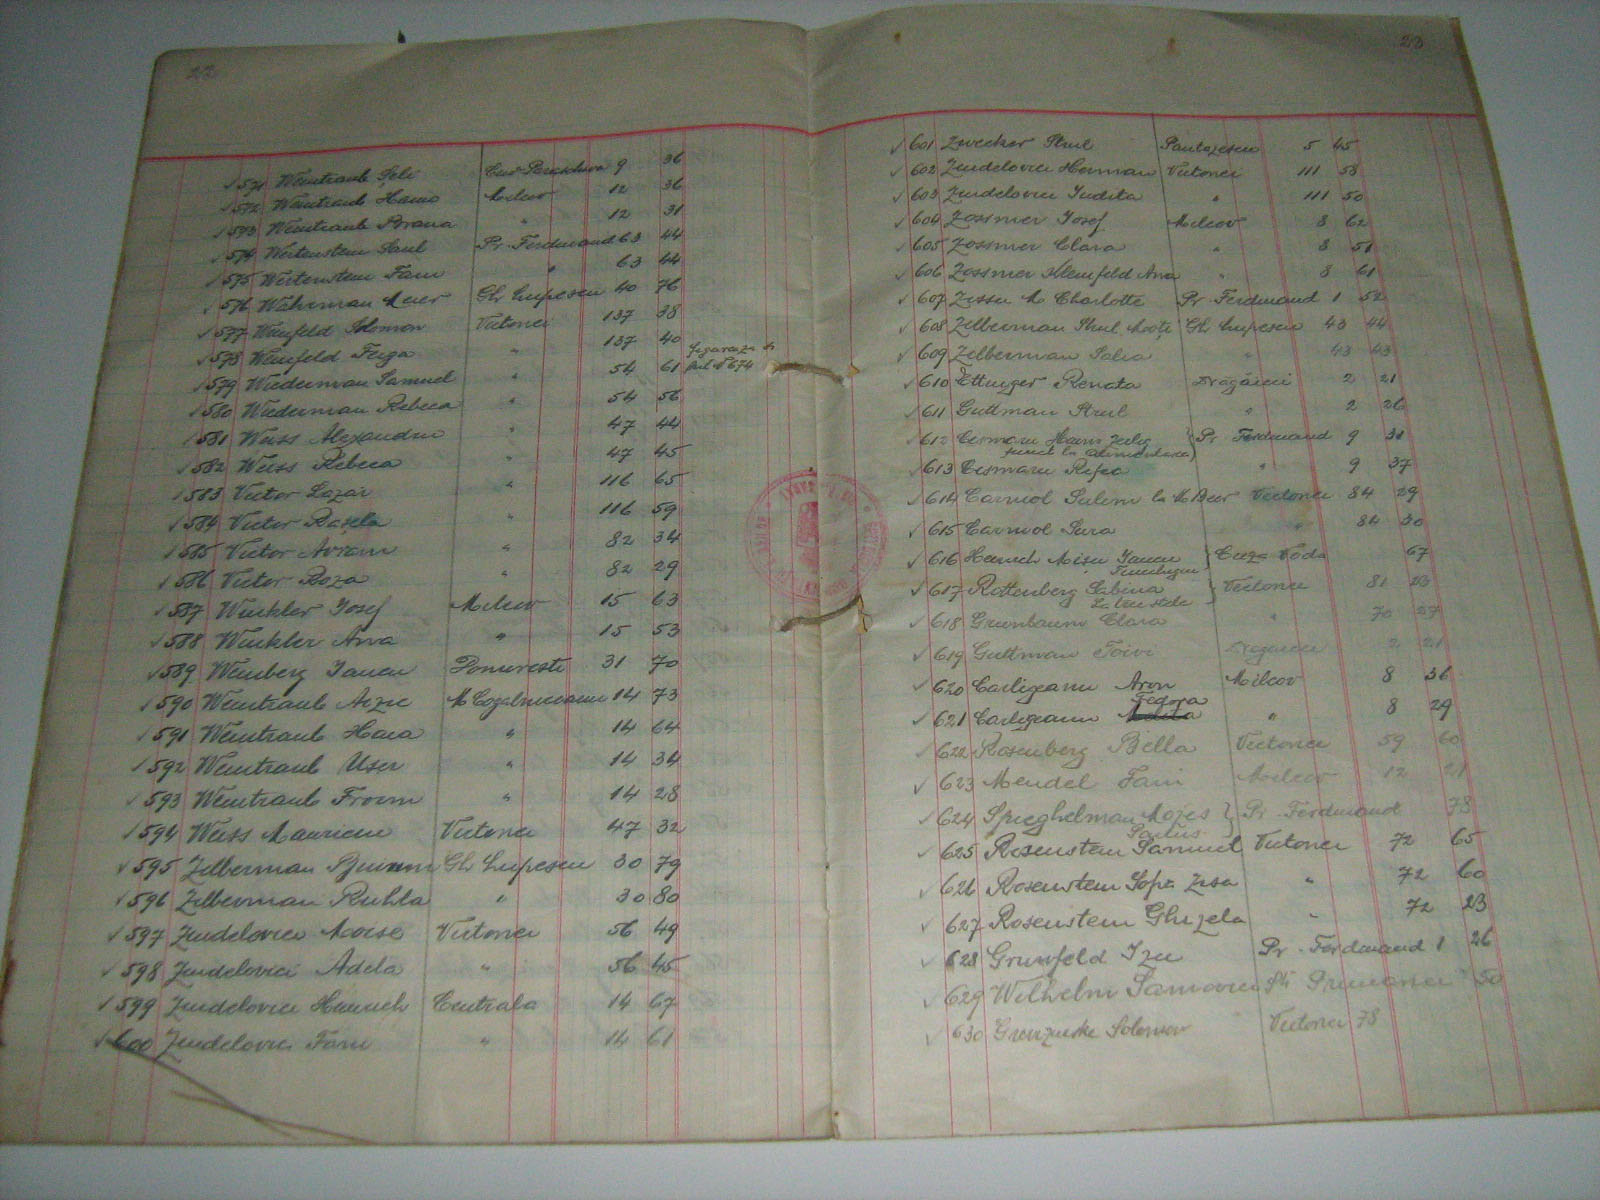 22
571 Weintraub Șeli Cuv Paraschiva 9 36
572 Weintraub Haim Milcov 12 36
573 Weintraub Brana " 12 31
574 Wertenstein Saul Pr. Ferdinand 63 44
575 Wertenstein Fani " 63 44
576 Wahrman Meer Gh Lupescu 40 76
577 Weinfeld Solomon Victoriei 137 38
578 Weinfeld Feiga " 137 40
579 Wiederman Samuel " 54 61 N 674
580 Wiederman Rebeca " 54 56
581 Weiss Alexandru " 47 44
582 Weiss Rebeca " 47 45
583 Victor Lazar " 116 65
584 Victor Rașela " 116 59
585 Victor Avram " 82 34
586 Victor Roza " 82 29
587 Winkler Iosef Milcov 15 63
588 Winkler Ana " 15 53
589 Weinberg Iancu Domneasca 31 70
590 Weintraub Aizic M Cogalniceanu 14 73
591 Weintraub Haia " 14 64
592 Weintraub User " 14 34
593 Weintraub Froim " 14 28
594 Weiss Mauriciu Victoriei 47 32
595 Zilberman Gh Lupescu 30 79
596 Zilberman Ruhla " 30 80
597 Zendelovici Moise Victoriei 56 49
598 Zendelovici Adela " 56 45
599 Zendelovici Heinrich Centrala 14 67
600 Zendelovici Fani " 14 61
23
601 Zwecker Strul Pantazescu 5 45
602 Zendelovici Herman Victoriei 111 58
603 Zendelovici Iudita " 111 50
604 Zossmer Iosef Milcov 8 62
605 Zossmer Clara " 8 51
606 Zossmer Ana " 8 61
607 Zissu M Charlotte Pr. Ferdinand 1 52
608 Zilberman Strul Gh Lupescu 43 44
609 Zilberman Salia " 43 43
610 Ettinger Renata Dragănei 2 21
611 Guttman Strul " 2 26
612 Haim Zelig Pr. Ferdinand 9 31
613 Rifca " 9 37
614 Carniol Sulim la M Beer Victoriei 84 29
615 Carniol Sura " 84 30
616 Heinich Moise Iancu Cuza Vodă 67
617 Rottenberg Sabina Victoriei 81 23
La trei stele
618 Grunbaum Clara " 70 27
619 Guttman Toivi 2 21
620 Carligeanu Aron Milcov 8 36
621 Carligeanu Fedora " 8 29
622 Rosenberg Bella Victoriei 59 60
623 Mendel Fani Milcov 12 21
624 Spieghelman Moses Pr. Ferdinand 78
625 Rosenstein Samuel Victoriei 72 65
626 Rosenstein Sofia Zisa " 72 60
627 Rosenstein Ghizela " 72 23
628 Grunfeld Izu Pr. Ferdinand 1 26
629 Wilhelm 50
630 Solomon Victoriei 78